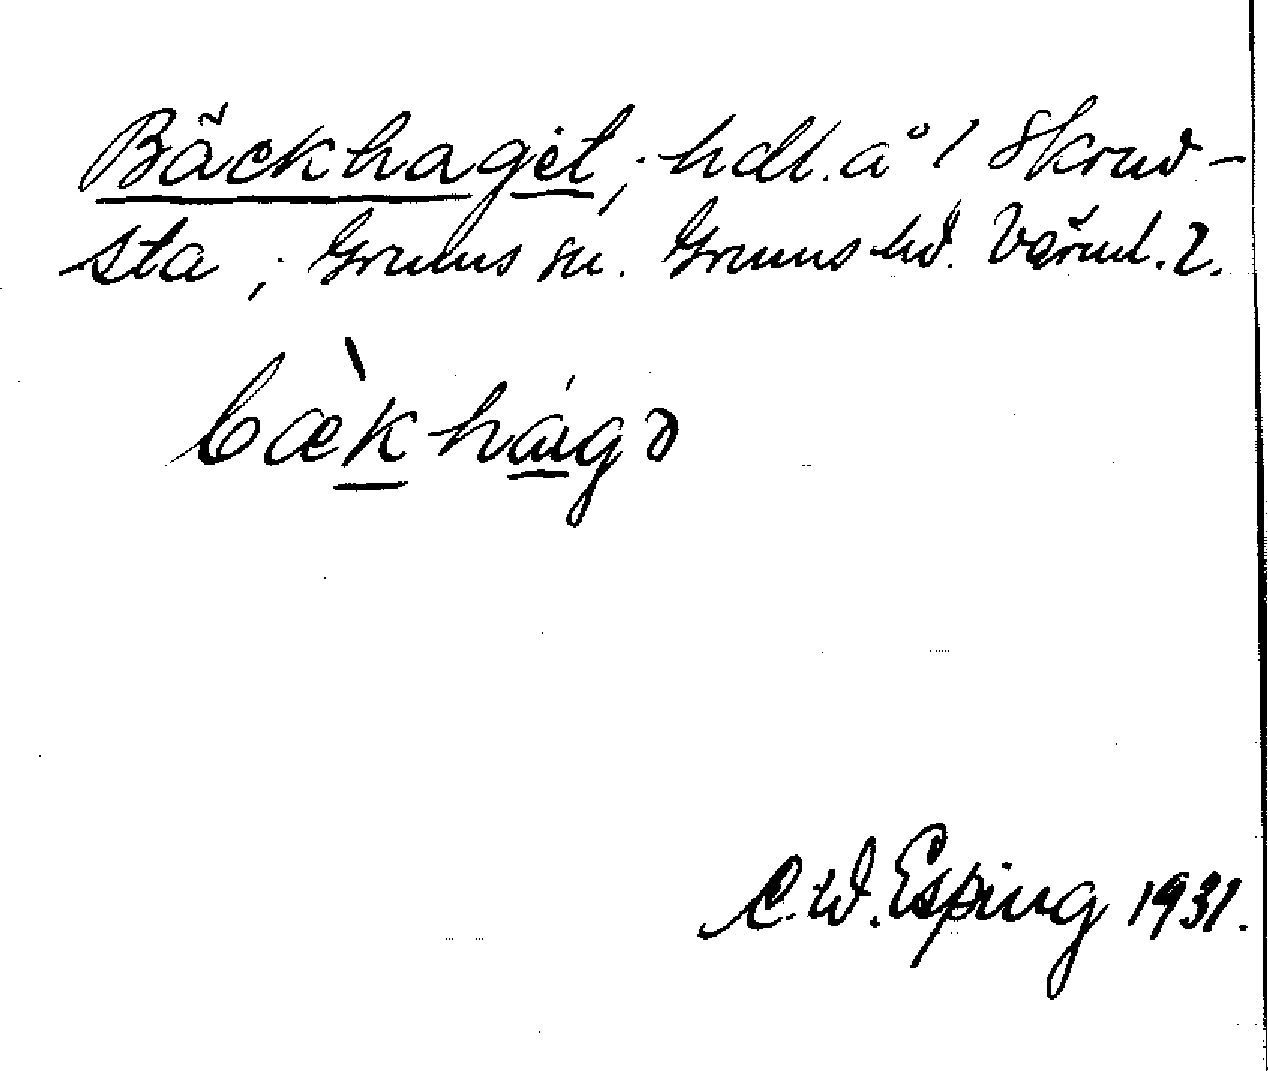 Bäckhaget, hdl. å 1 Skruv-
sta, Grums sn. Grums hd. Värml. l.
bæk hágə
C. W. Esping 1931.